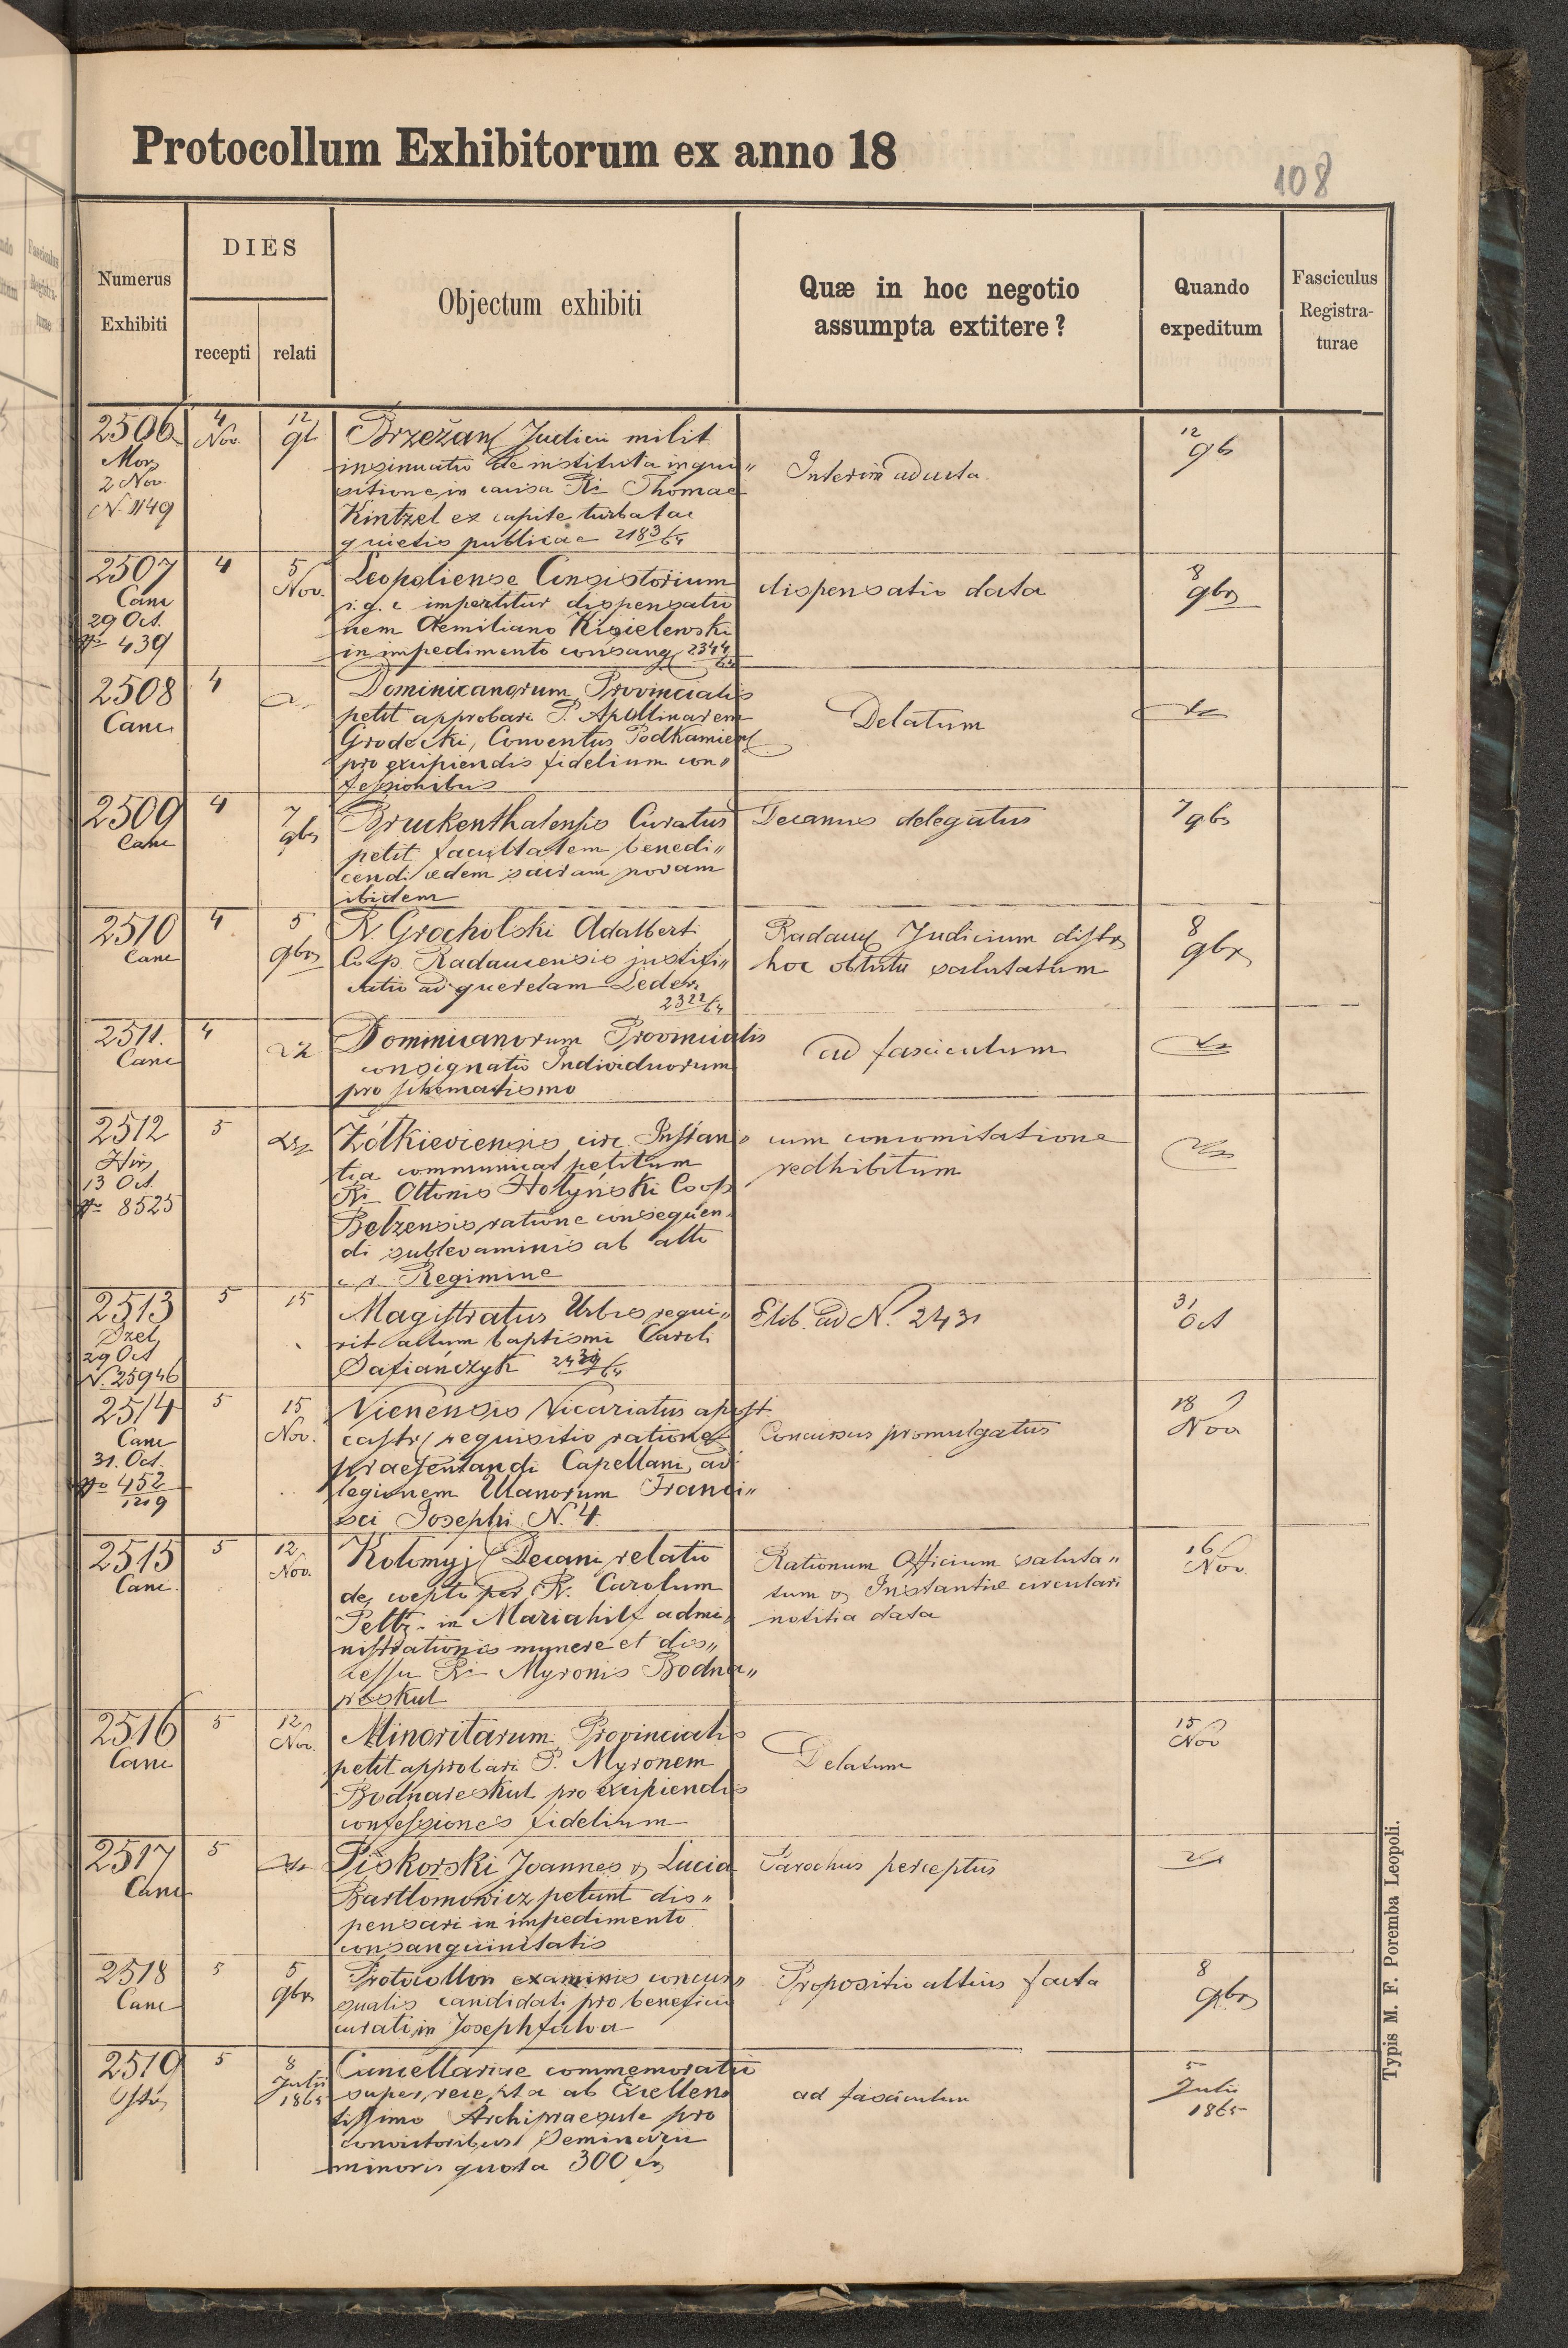 Protocollum Exhibitorum ex anno 18
108
Numerus
Exhibiti
DIES
recepti
relati
Objectum exhibiti
Quæ in hoc negotio
assumpta extitere?
Quando
expeditum
Fasciculus
Registra-
turae
2506
2 Nov.
N. 1149
4
Nov.
12
Brzežan Judicii milit
insinuatio de instituta inqui„
sitione in causa Ri Thomae
Kintzel ex capite turbatae
quietis publicae 2183/64
Interim ad acta
12
9b
2507
Canc
29 Oct.
No 439
4
5
Nov.
Leopoliense Consistorium
r. g. c impertitur dispensatio
nem Aemiliano Kisielewski
in impedimento consang 2344/64
dispensatio data
8
9br
2508
Canc
4
Dominicanorum Provincialis
petit approbari P. Apollinarem
Grodecki, Conventus Podkamien
pro excipiendis fidelium con„
fessionibus
Delatum
2509
Canc
4
7
9br
Bruckenthalensis Curatus
petit facultatem benedi„
cendi aedem sacram novam
ibidem
Decanus delegatus
7 9br
2510
Canc
4
5
9br
R. Grocholski Adalbert
Coop Radaucensis justifi„
catio ad querelam Leder
2322/64
Radauc Judicium distr
hoc obtutu salutatum
8
9br
2511.
Canc
4
Dominicanorum Provincialis
consignatio Individuorum
pro schematismo
ad fasciculum
2512
13 Oct.
No 8525
5
Żółkieviensis circ. Instan„
tia communicat petitum
Ri Ottonis Hołyński Coop
Belzensis ratione consequen„
di sublevaminis ab alto
c. r. Regimine
cum concomitatione
redhibitum
2513
29 Oct
N. 25946
5
15
Magistratus Urbis requi„
rit actum baptismi Caroli
Safiańczyk
ad N. 2431
31
Oct
2514
Canc
31. Oct.
No 452
1219
5
15
Nov.
Vienensis Vicariatus apost
castr requisitio ratione
praesentandi Capellani ad
legionem Ulanorum Franci„
sci Josephi N. 4
Concursus promulgatus
18
Nov
2515
Canc
5
12
Nov.
Kołomyj Decani relatio
de coepto per R. Carolum
Peltz in Mariahilf admi„
nistrationis munere et dis„
cessu Ri Myronis Bodna„
reskul
Rationum Officium saluta„
tum & Instantiae circulari
notitia data
16
Nov
2516
Canc
5
12
Nov.
Minoritarum Provincialis
petit approbari P. Myronem
Bodnareskul pro excipiendis
confessiones fidelium
Delatum
15
Nov
2517
Canc
5
Piskorski Joannes & Lucia
Bartłomowicz petunt dis„
pensari in impedimento
consanguinitatis
Parochus perceptus
2518
Canc
5
5
9br
Protocollon examinis concur„
sualis candidati pro beneficio
curati in Josephfalva
Propositio altius facta
8
9br
2519
5
8
Julii
1865
Cancellariae commemoratio
super recepta ab Excellen
tissimo Archipraesule pro
convictoribus Seminarii
minoris quota 300
ad fasciculum
5
Julii
1865
Typis M. F. Poremba Leopoli.